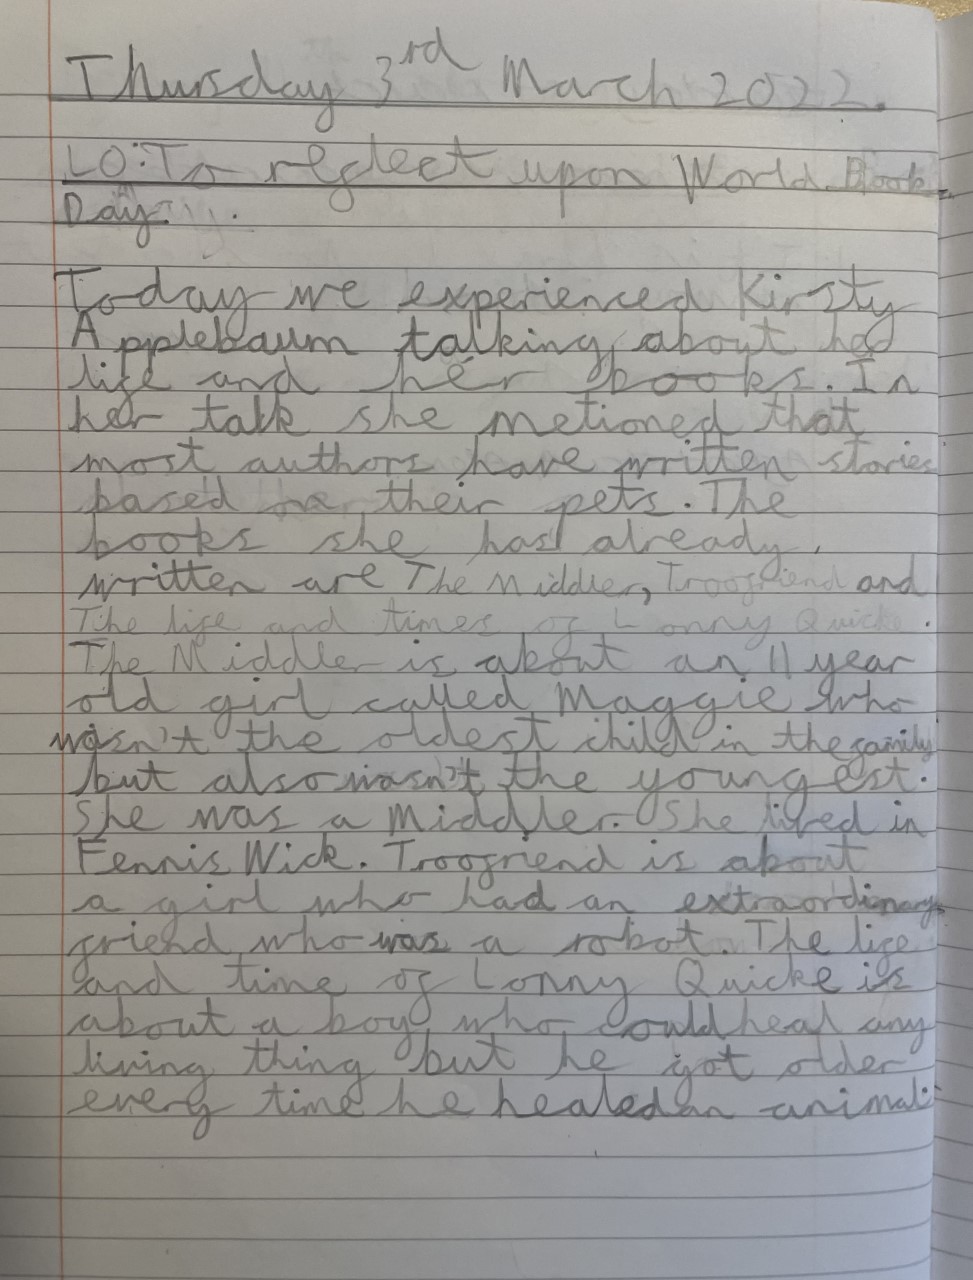 Thursday 3rd March 2022.
LO: To reflect upon World Book
Day.
Today we experienced Kirsty
Applebaum talking about
life and her books. In
her talk she metioned that
most authors have written stories
based their pets. The
books she has already
written are The Middler, Troofriend and
The life and times of Lonny Quicke.
The Middler is about an 11 year
old girl called Maggie who
wasn't the oldest child in the family
but also wasn't the youngest.
She was a Middler. She lived in
Fennis Wick. Troofriend is about
a girl who had an extraordinary
friend who was a robot. The life
and time of Lonny Quicke is
about a boy who could heal any
living thing but he got older
every time he healed an animal.